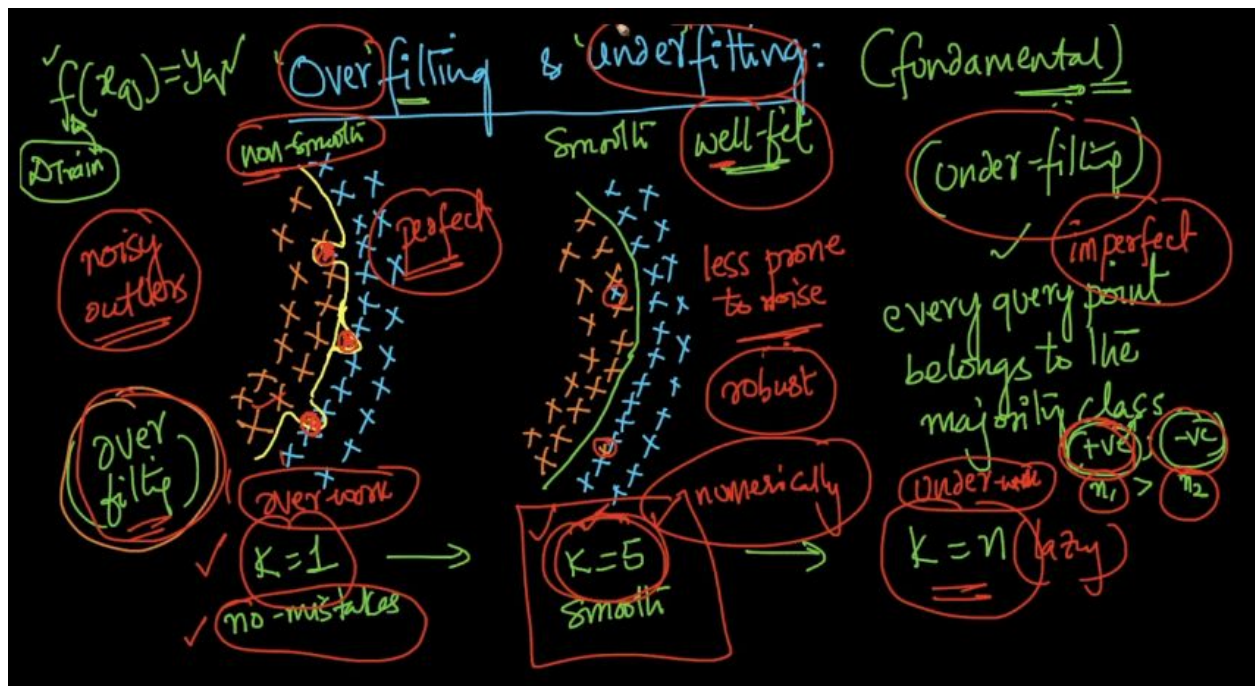 f(xq)=yq
'Over'fitting & 'underfitting:
(fundamental)
DTrain
non-smooth
Smooth
well-fit
(under-fitting)
perfect
imperfect
noisy
outliers
less prone
to noise
every query point
belongs to the
majority class
robust
+ve
-ve
over
fitting
over-work
numerically
under-work
n1 > n2
K=1
K=5
K=n (lazy)
no-mistakes
smooth